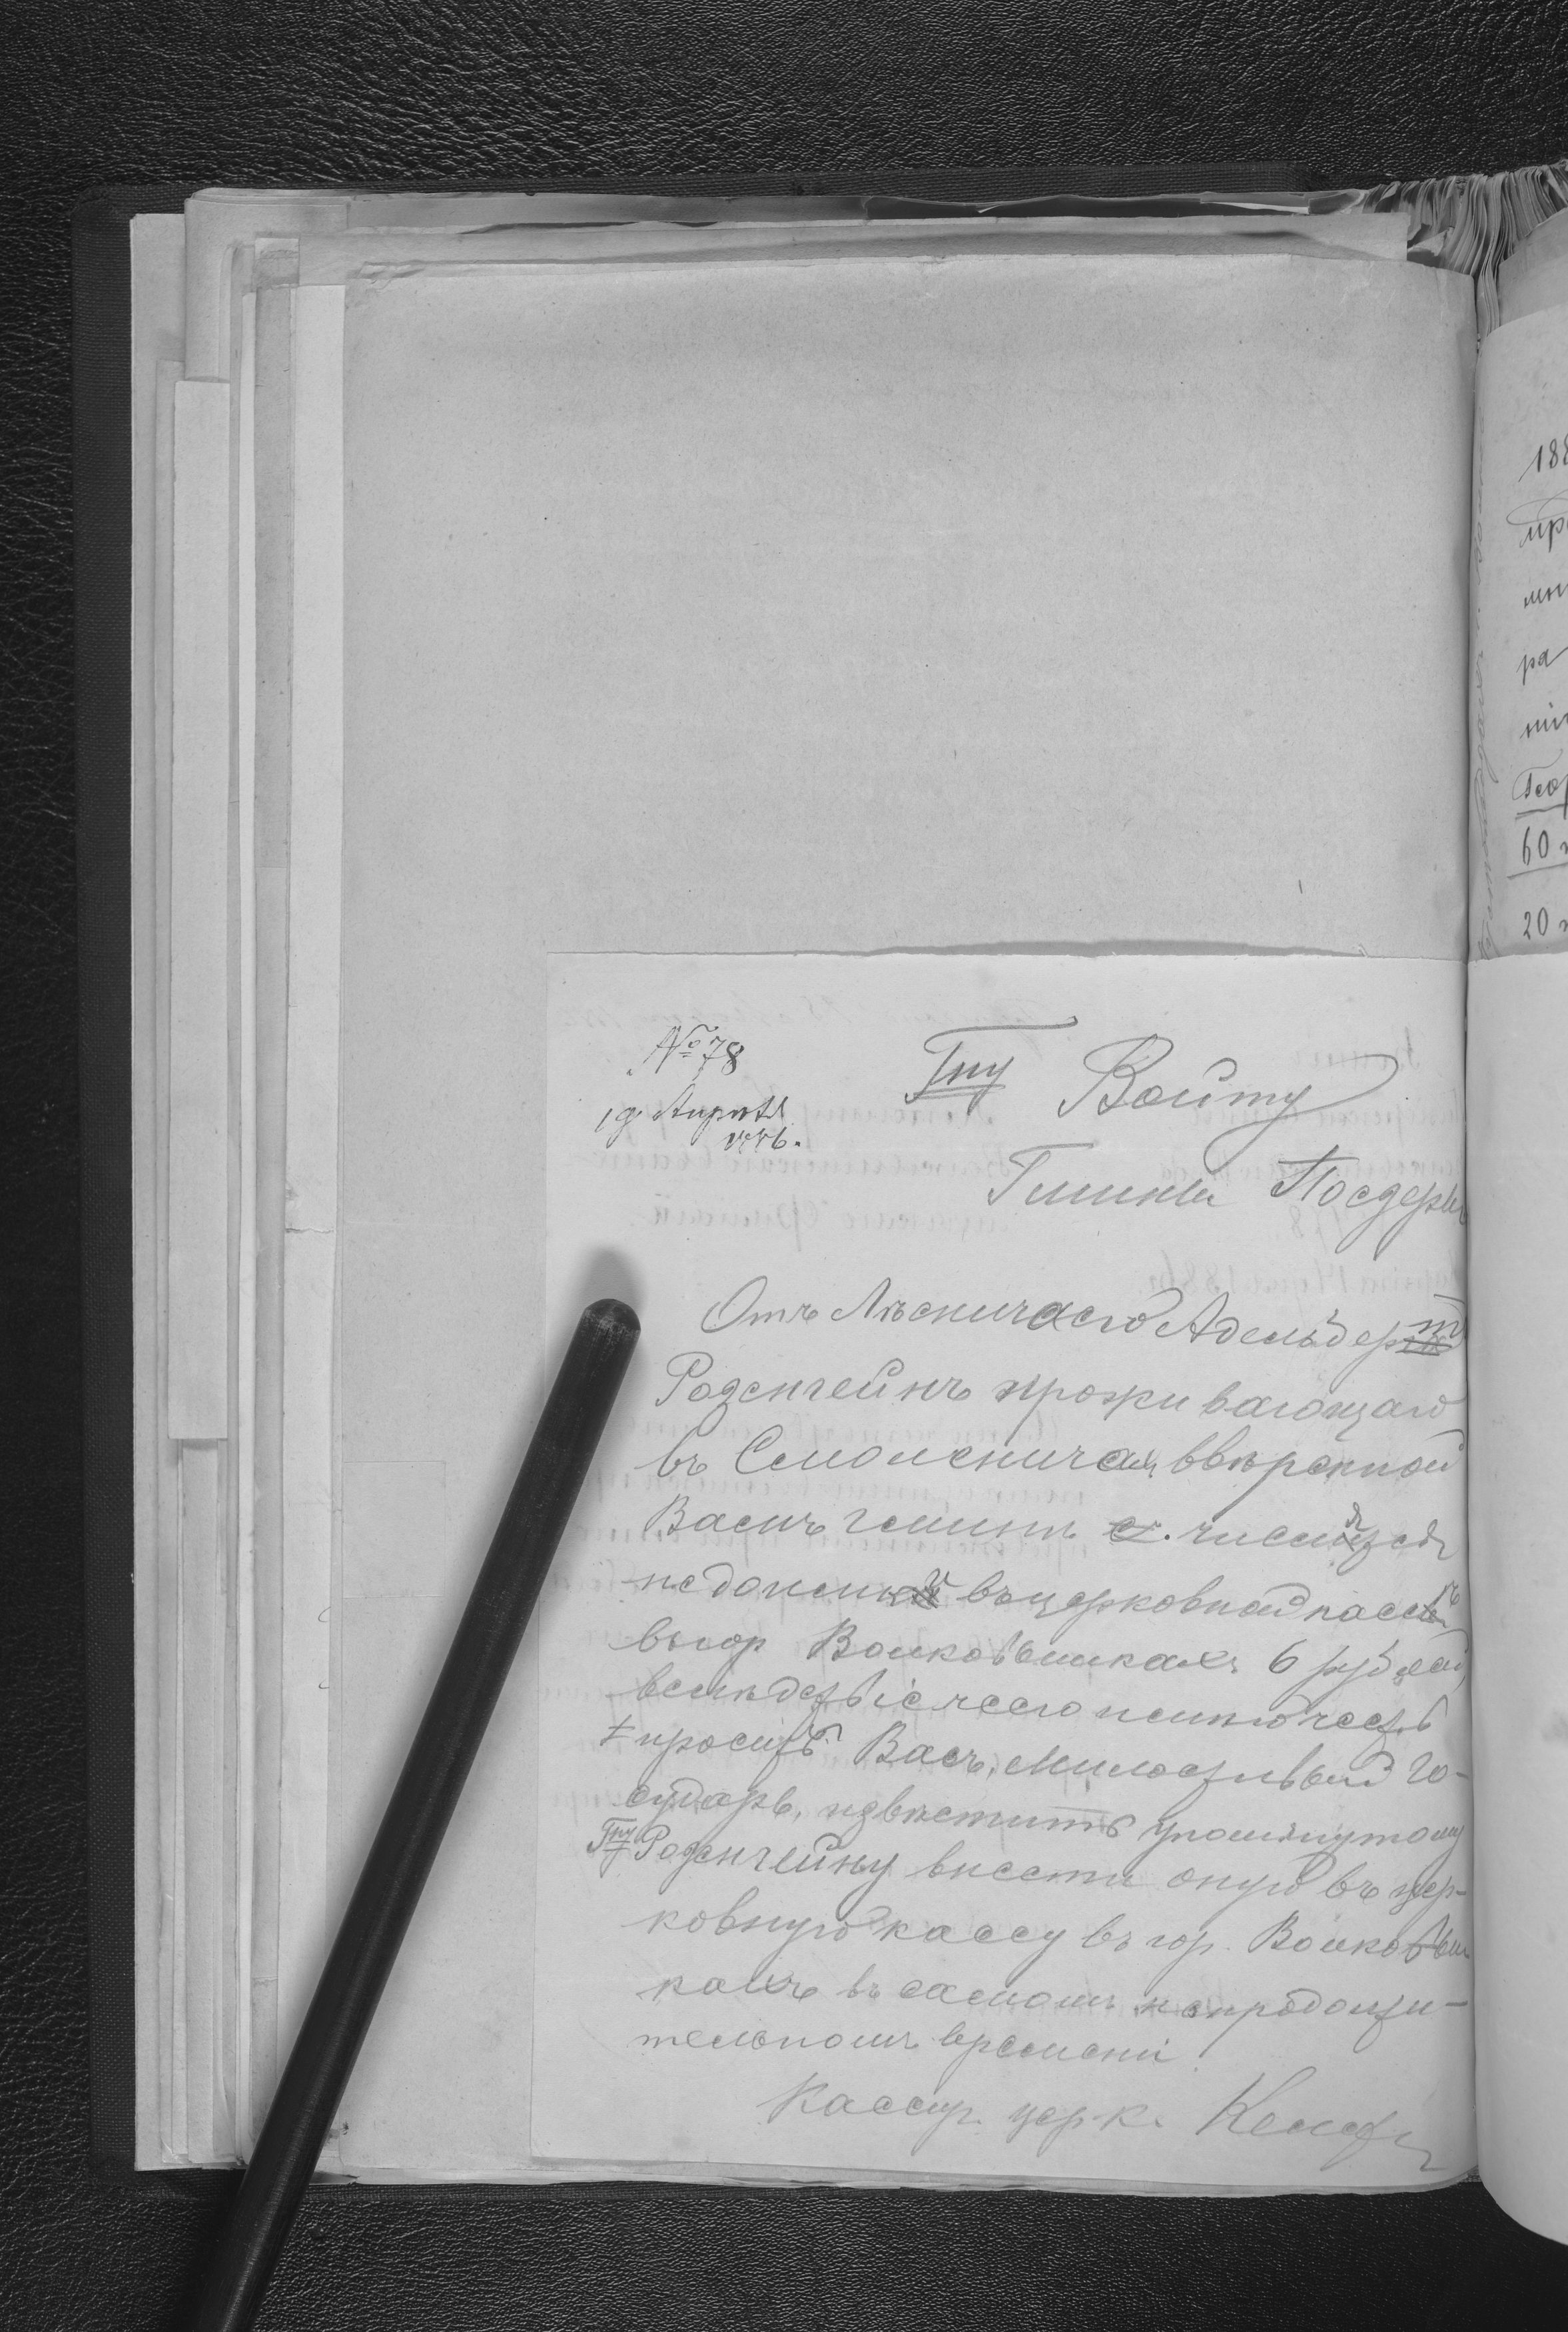 № 78
19 Апрѣля
1886.
Гну Войту
Гмины Поедеры
Отъ Лѣсничаго Адельберт
Розенгейнъ проживающаго
въ Смоленичах ввѣренной
Вамъ гминѣ числится
недоимки въ церковной кассѣ
въ гор Волковышкахъ 6 рублей,
вслѣдствіе чего имѣю честь
просить Васъ, Милостивый Го-
сударь, извѣстить упомянутому
Гну Розенгейну внести оную въ цер-
ковную кассу въ гор. Волковыш
кахъ въ самомъ непродолжи-
тельномъ времени
Кассир. церк.
188
пр
мн
ра
ні
Геор
60
20